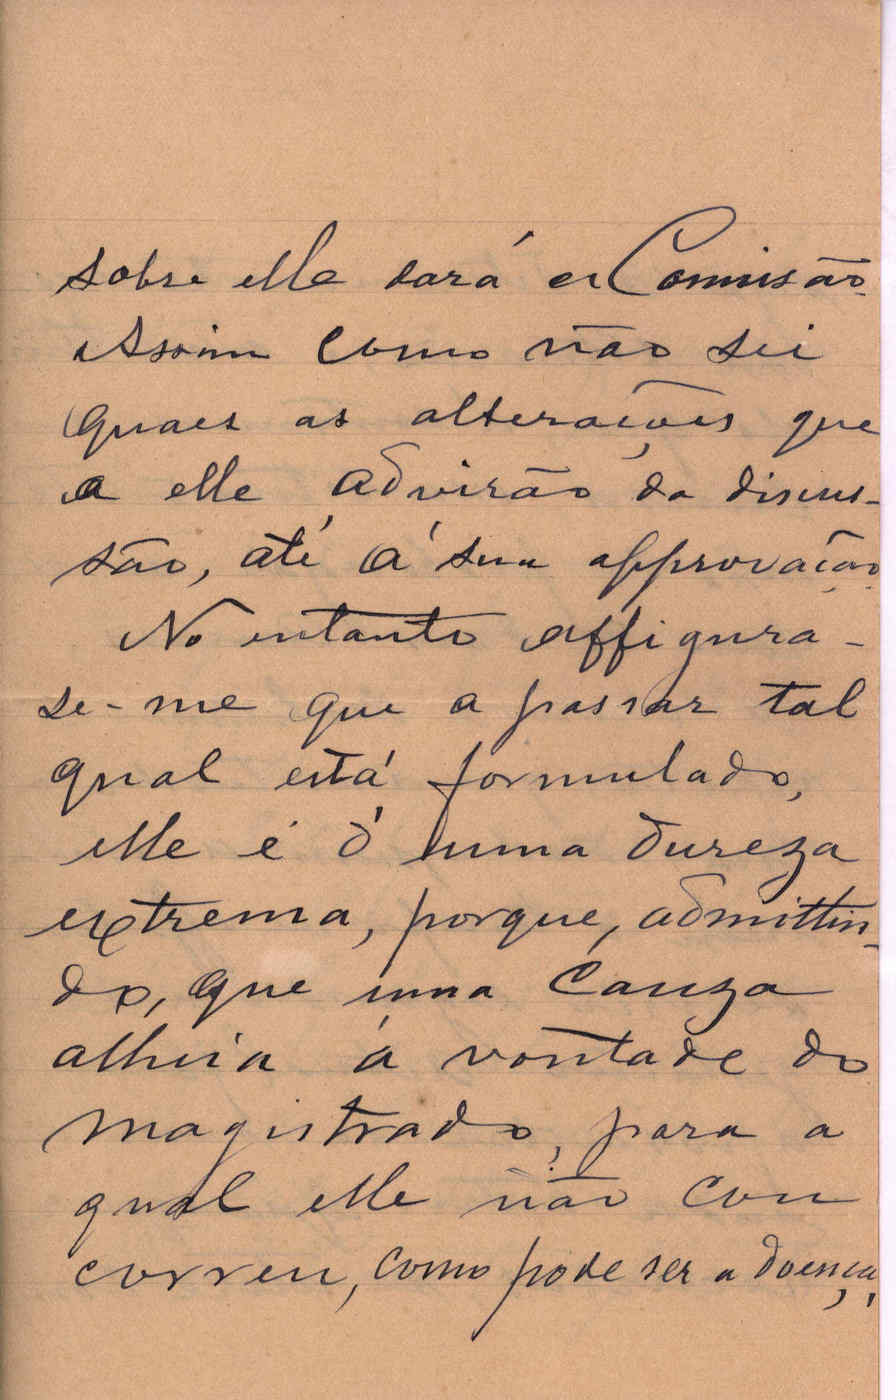 sobre elle dará a Comissão.
Assim como não sei
quaes as alterações que
a elle advirão da discus-
são, até á sua approvação.
No entanto affigura-
se-me que a passar tal
qual está formulado,
elle é d'uma dureza
extrema, porque, admittin-
do, que uma cauza
alheia á vontade do
magistrado, para a
qual elle não con
correu, como pode ser a doença,